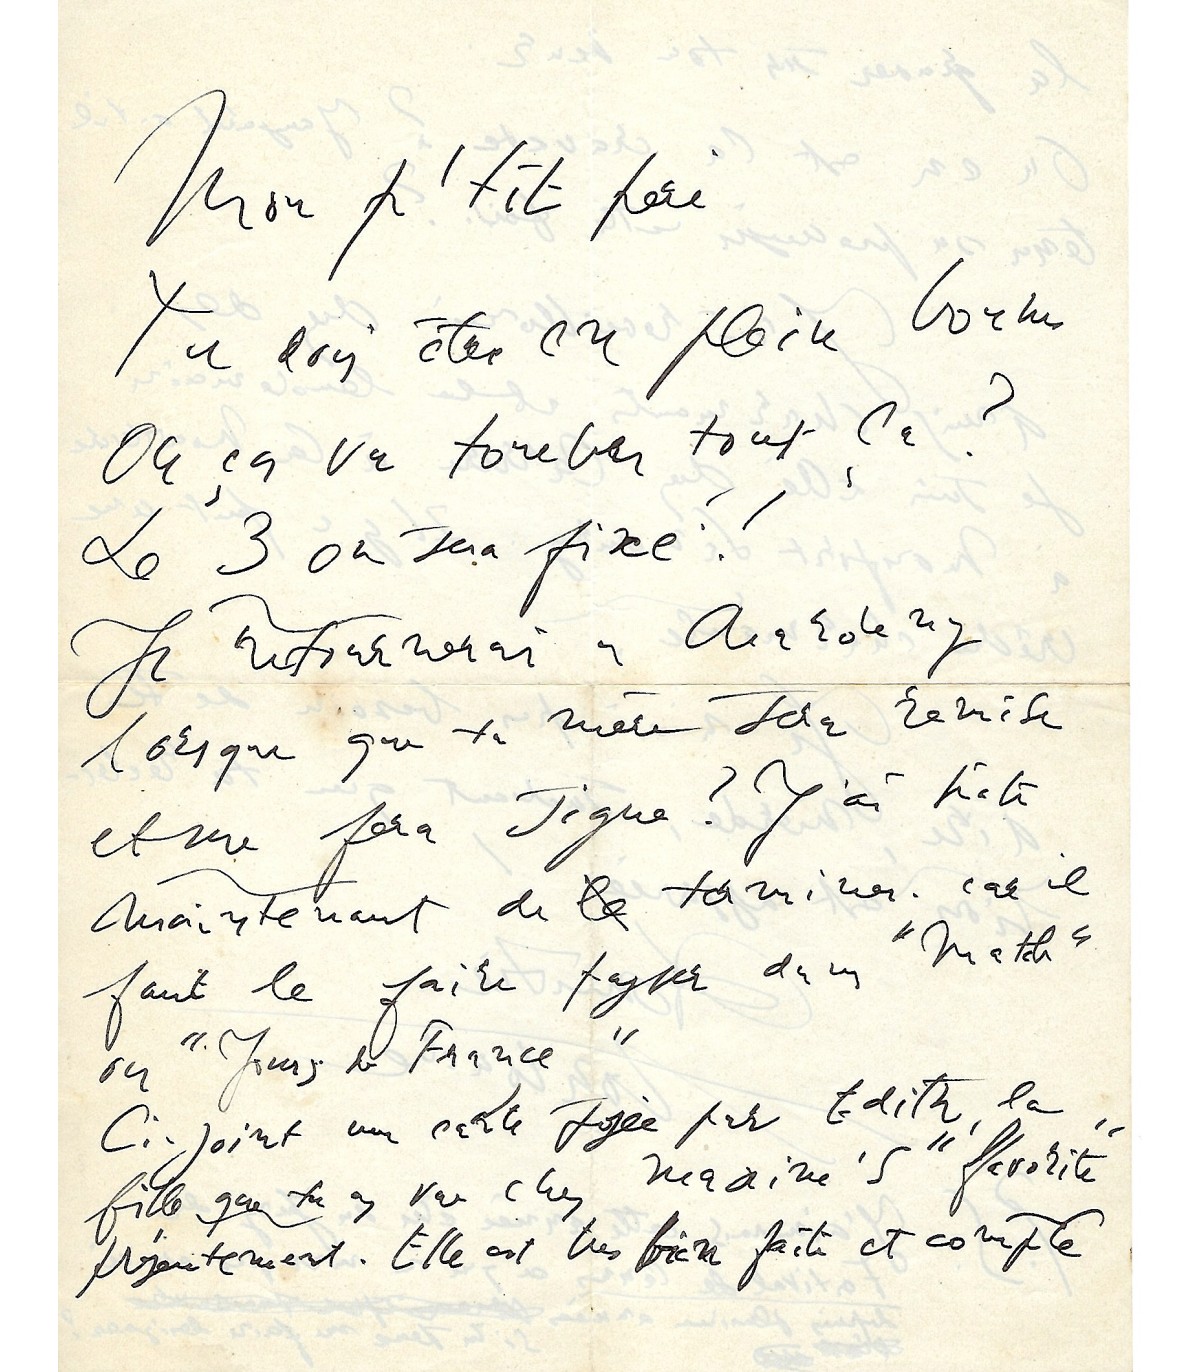 Mon p'tit père
Tu dois être en plein boum
Où ça va tomber tout ça ?
Le 3 on sera fixé !!
Je retournerai a
lorsque que ta mère sera remise
et me fera signe ? J'ai hate
maintenant de le terminer. car il
faut le faire passer dans "Match"
ou "Jours de France"
Ci-joint une carte signée par Edith, la
fille que tu as vue chez maxime's "favorite"
présentement. Elle est très bien faite et compte